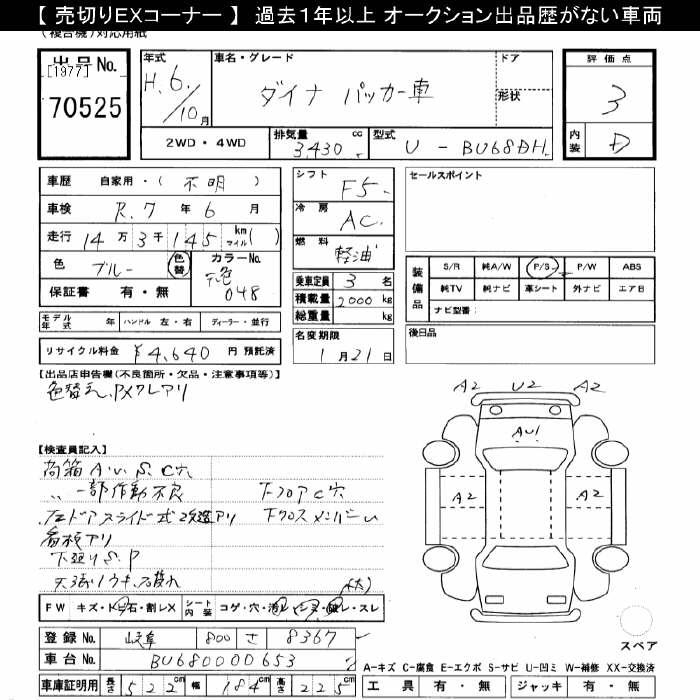 【 売切りEXコーナー 】 過去1年以上 オークション出品歴がない車両
(複合機)対応用紙
出品 No.
[1977]
70525
年式
H.6/10月
車名・グレード
ダイナ パッカー車
ドア
形状
評価点
3
内装
D
2WD・4WD
排気量
3,430 cc
型式
U - BU68DH
車歴 自家用・( 不明 )
車検 R.7 年 6 月
走行 14 万 3 千 145 km マイル ( )
色 ブルー 色替
カラーNo.
元色 048
保証書 有・無
シフト
F5
冷房
AC
燃料
軽油
乗車定員 3 名
積載量 2000 kg
総重量 kg
セールスポイント
装備品
S/R 純A/W P/S P/W ABS
純TV 純ナビ 革シート 外ナビ エアB
ナビ型番:
モデル年式 年 ハンドル 左・右 ディーラー・並行
名変期限
1月21日
後日品
リサイクル料金 ¥4,640 円 預託済
【出品店申告欄(不良箇所・欠品・注意事項等)】
色替え、PXクレアリ
A2 U2 A2
AU1
A2 A2
【検査員記入】
荷箱 A.U.S.C穴
〃 一部作動不良
下フロアC穴
左ドアスライド式改造アリ
看板アリ
下廻りS.P
(大)
FW キズ・トビ石・割レX シート内装 コゲ・穴・汚レ・シミ・破レ・スレ
登録 No. 岐阜 800 さ 8367
車台 No. BU680000653
車庫証明用 長さ 522 cm 幅 184 cm 高さ 225 cm
スペア
A-キズ C-腐食 E-エクボ S-サビ U-凹ミ W-補修 XX-交換済
工具 有・無 ジャッキ 有・無